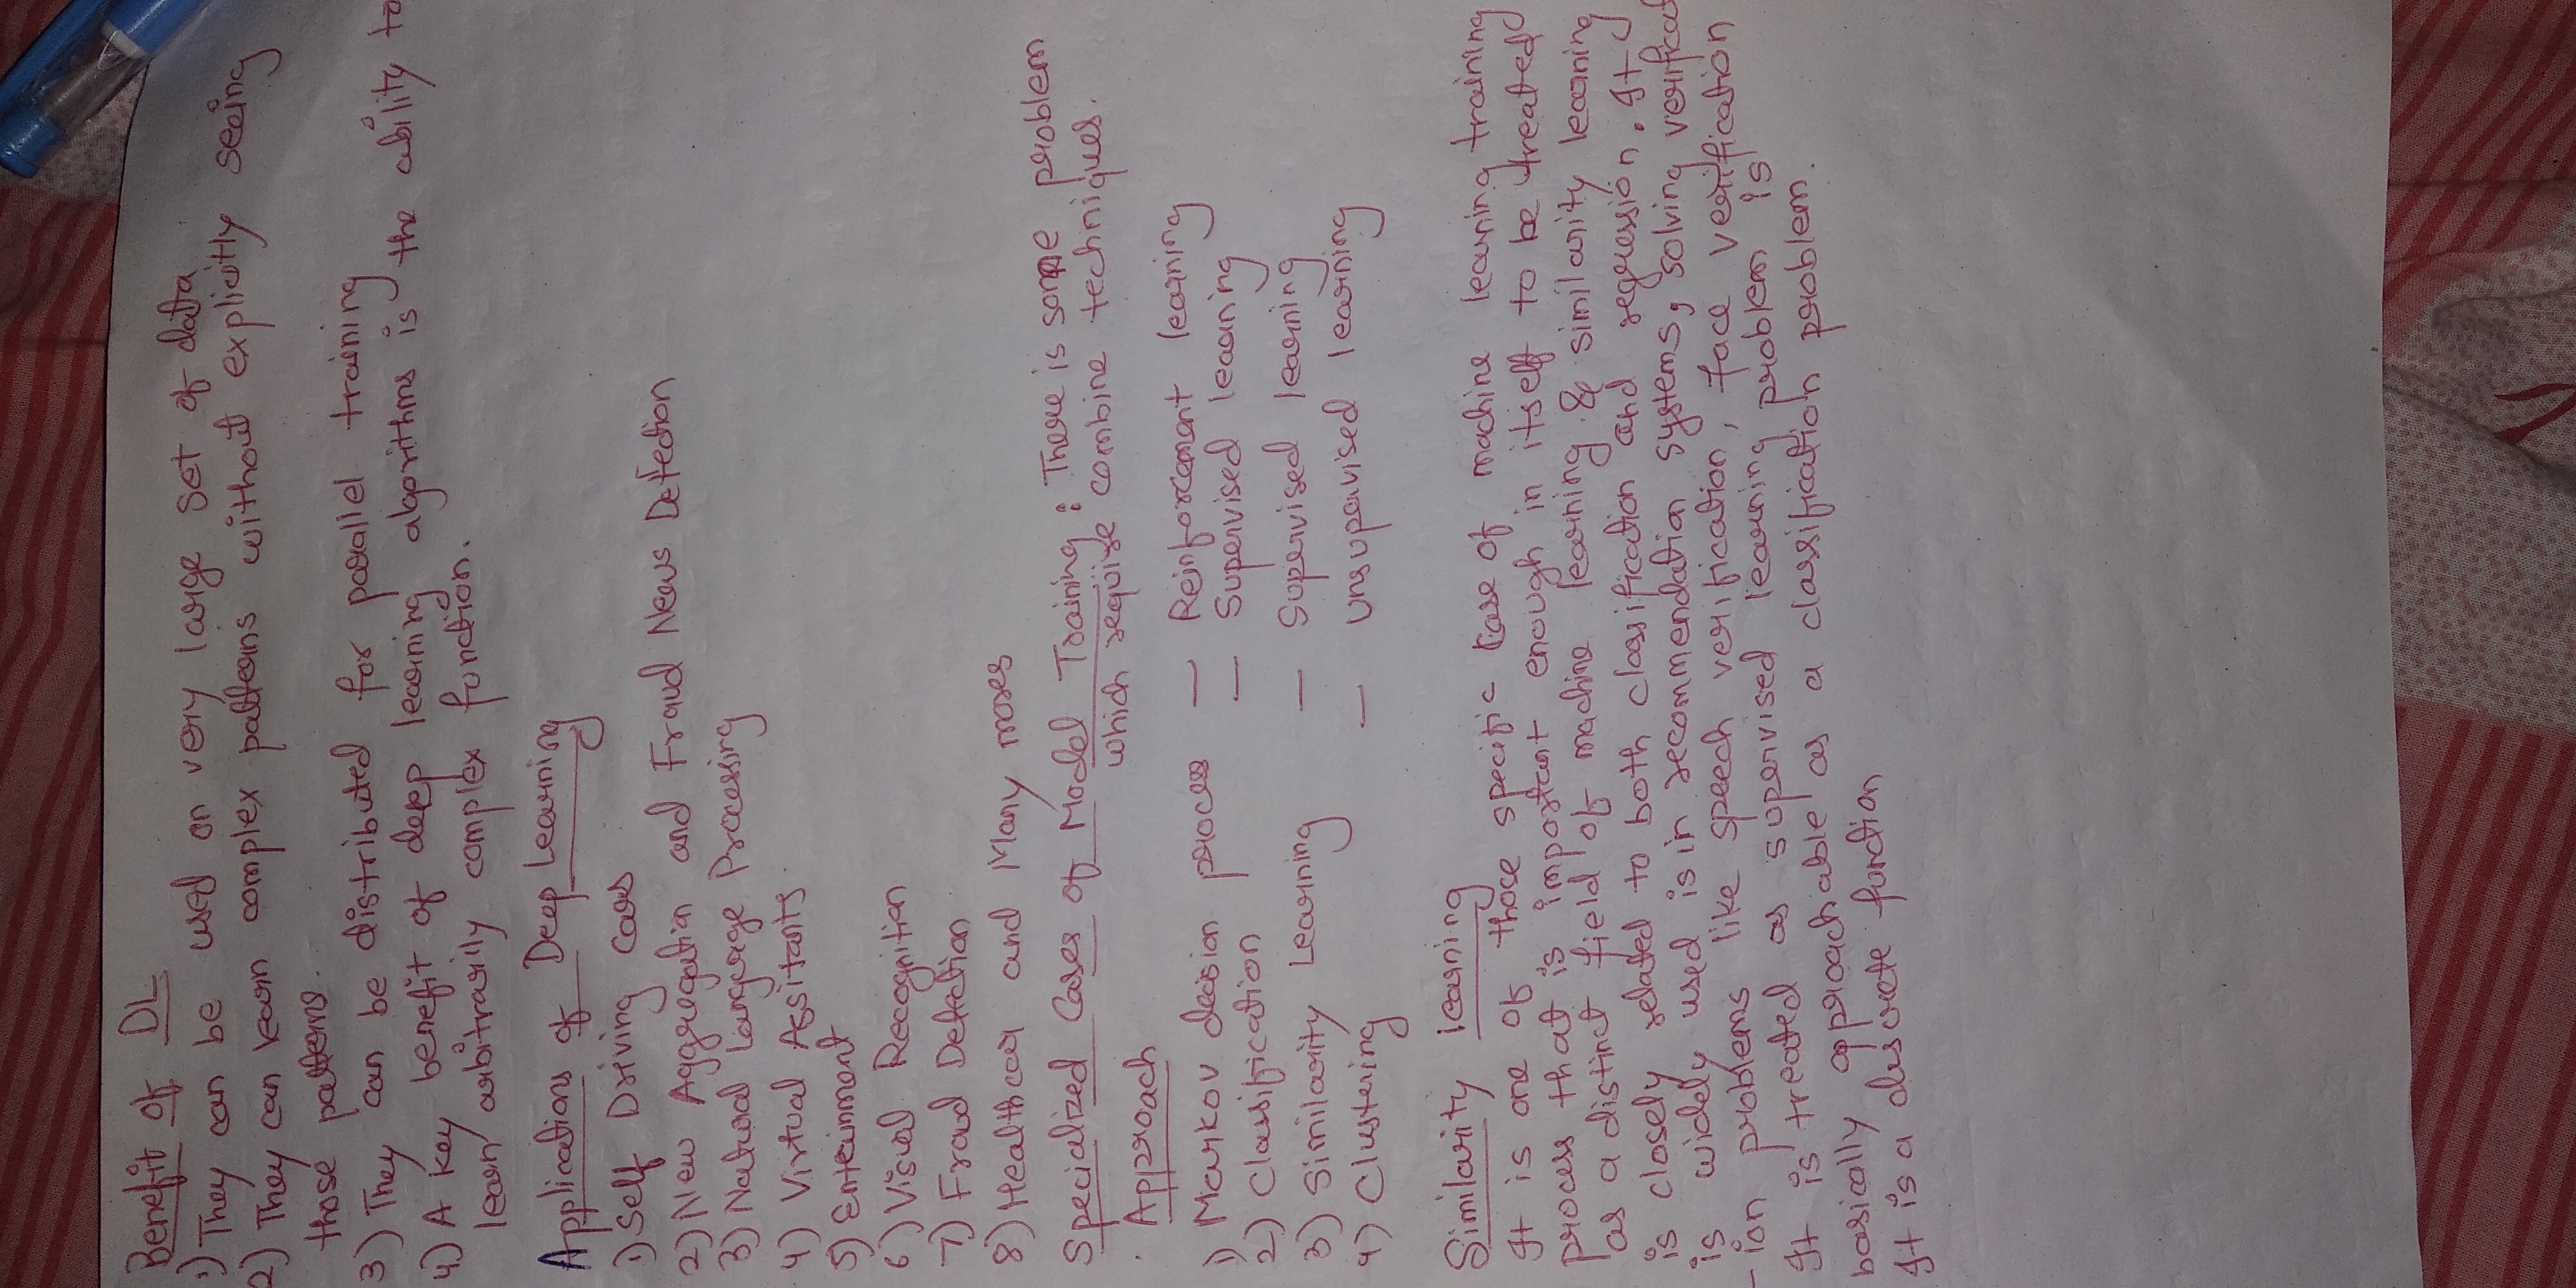 Benefit of DL
1) They can be used on very large set of data
2) They can learn complex patterns without explicitly seeing
those patterns.
3) They can be distributed for parallel training
4) A key benefit of deep learning algorithms is the ability to
learn arbitrarily complex function.
Applications of Deep Learning
1) Self Driving Cars
2) New Aggregation and Fraud News Detection
3) Natural Language Processing
4) Virtual Assitants.
5) Enteinment
6) Visual Recognition
7) Fraud Detection
8) Healthcar and Many mores
Specialized Cases of Model Training : There is some problem
which require combine techniques.
Approach
1) Markov decision process — Reinforcement learning
2) Classification — Supervised learning
3) Similarity Learning — Supervised learning
4) Clustering — Unsupervised learning
Similarity learning
It is one of those specific case of machine learning training
process that is important enough in itself to be treated
as a distinct field of machine learning & similarity learning
is closely related to both classification and regression. It
is widely used is in recommendation systems, solving verificat
-ion problems like speech verification, face verification
It is treated as supervised learning problem is
basically approachable as a classification problem.
It is a discrete function